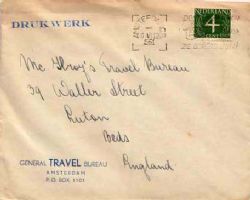 DRUKWERK
NEDERLAND
4
CENT
Mc Ilroy's Travel Bureau
39 Waller Street
Luton
Beds
England
GENERAL TRAVEL BUREAU
AMSTERDAM
P.O. BOX 5101